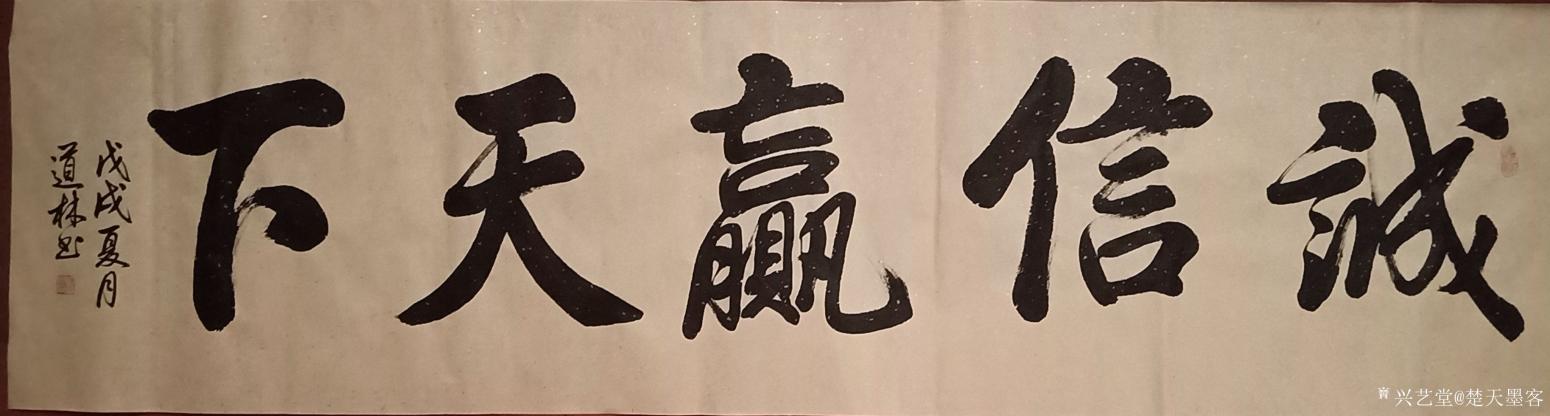 誠信贏天下
戊戌夏月
道林书
兴艺堂@楚天墨客